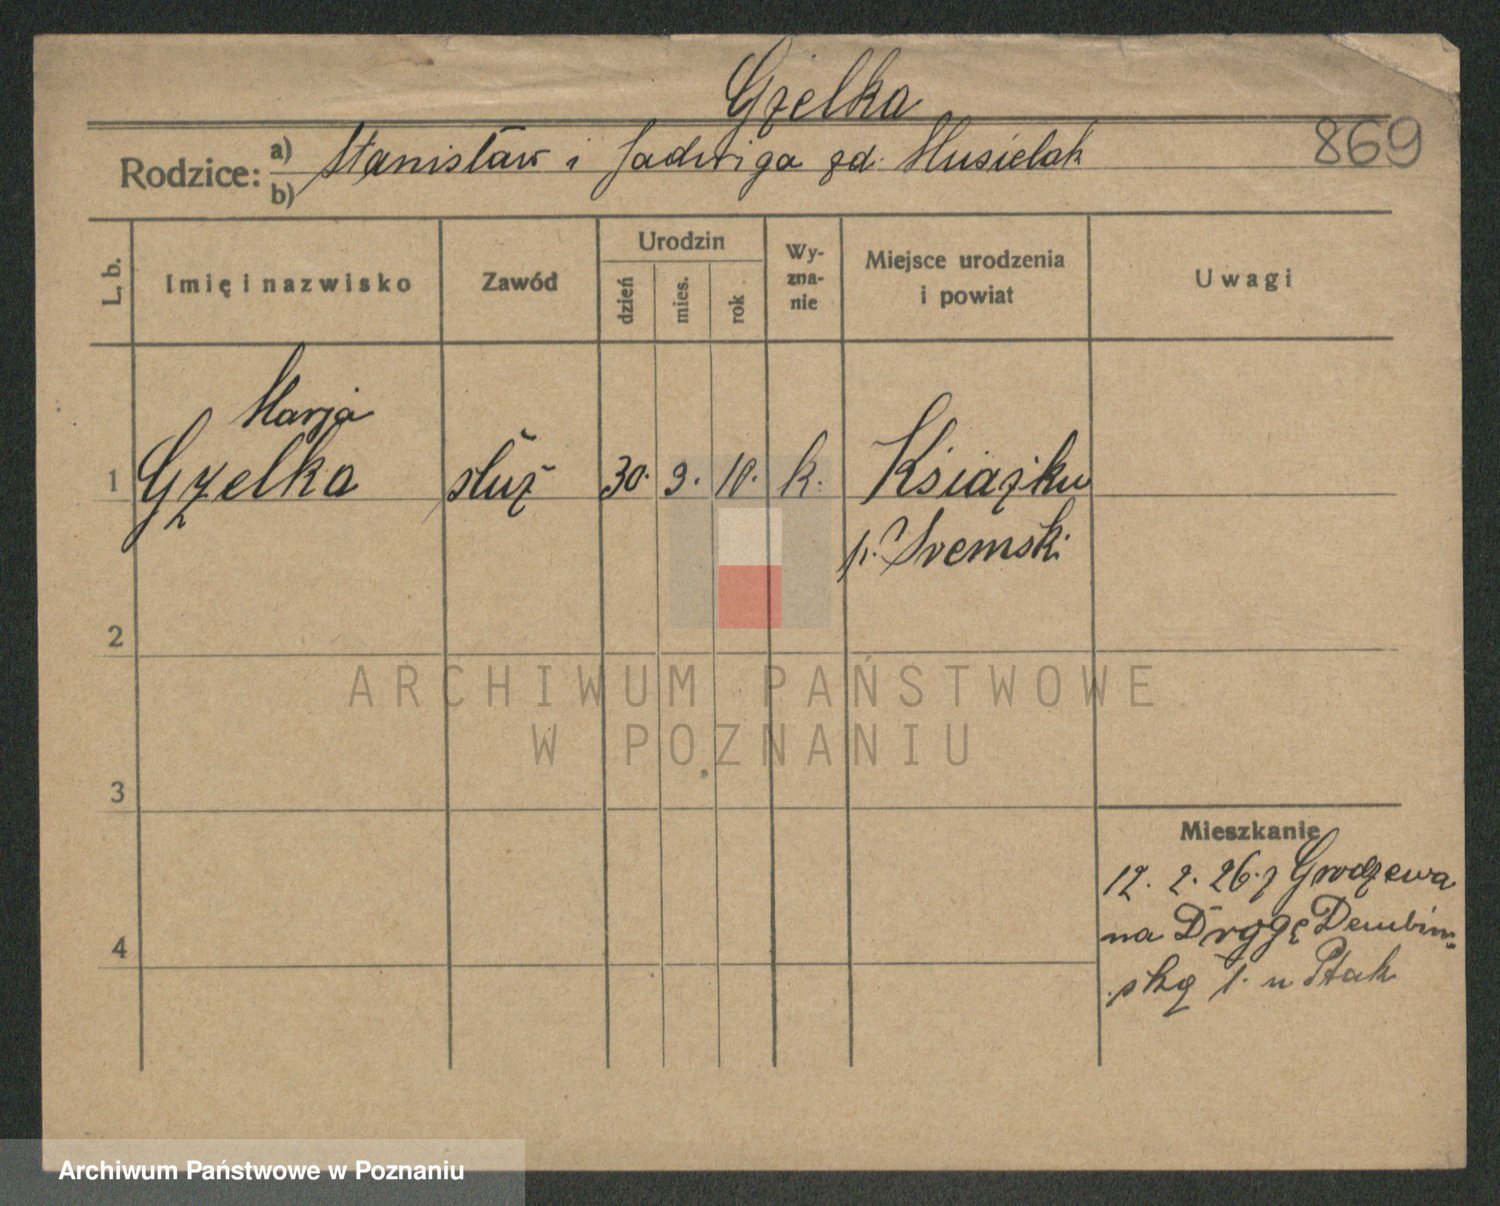 Gzelka
869
Rodzice: a) Stanisław i Jadwiga zd. Musielak
b)
L. b.
Imię i nazwisko
Zawód
Urodzin
dzień
mies.
rok
Wy-
zna-
nie
Miejsce urodzenia
i powiat
Uwagi
Marja
1 Gzelka służ 30. 9. 10. k. Książku
p. Śremski
2
ARCHIWUM PAŃSTWOWE
W POZNANIU
3
Mieszkanie
12. 2. 26. z Grodzewa
na Drogę Dembin-
4
ską 1. u Ptak
Archiwum Państwowe w Poznaniu